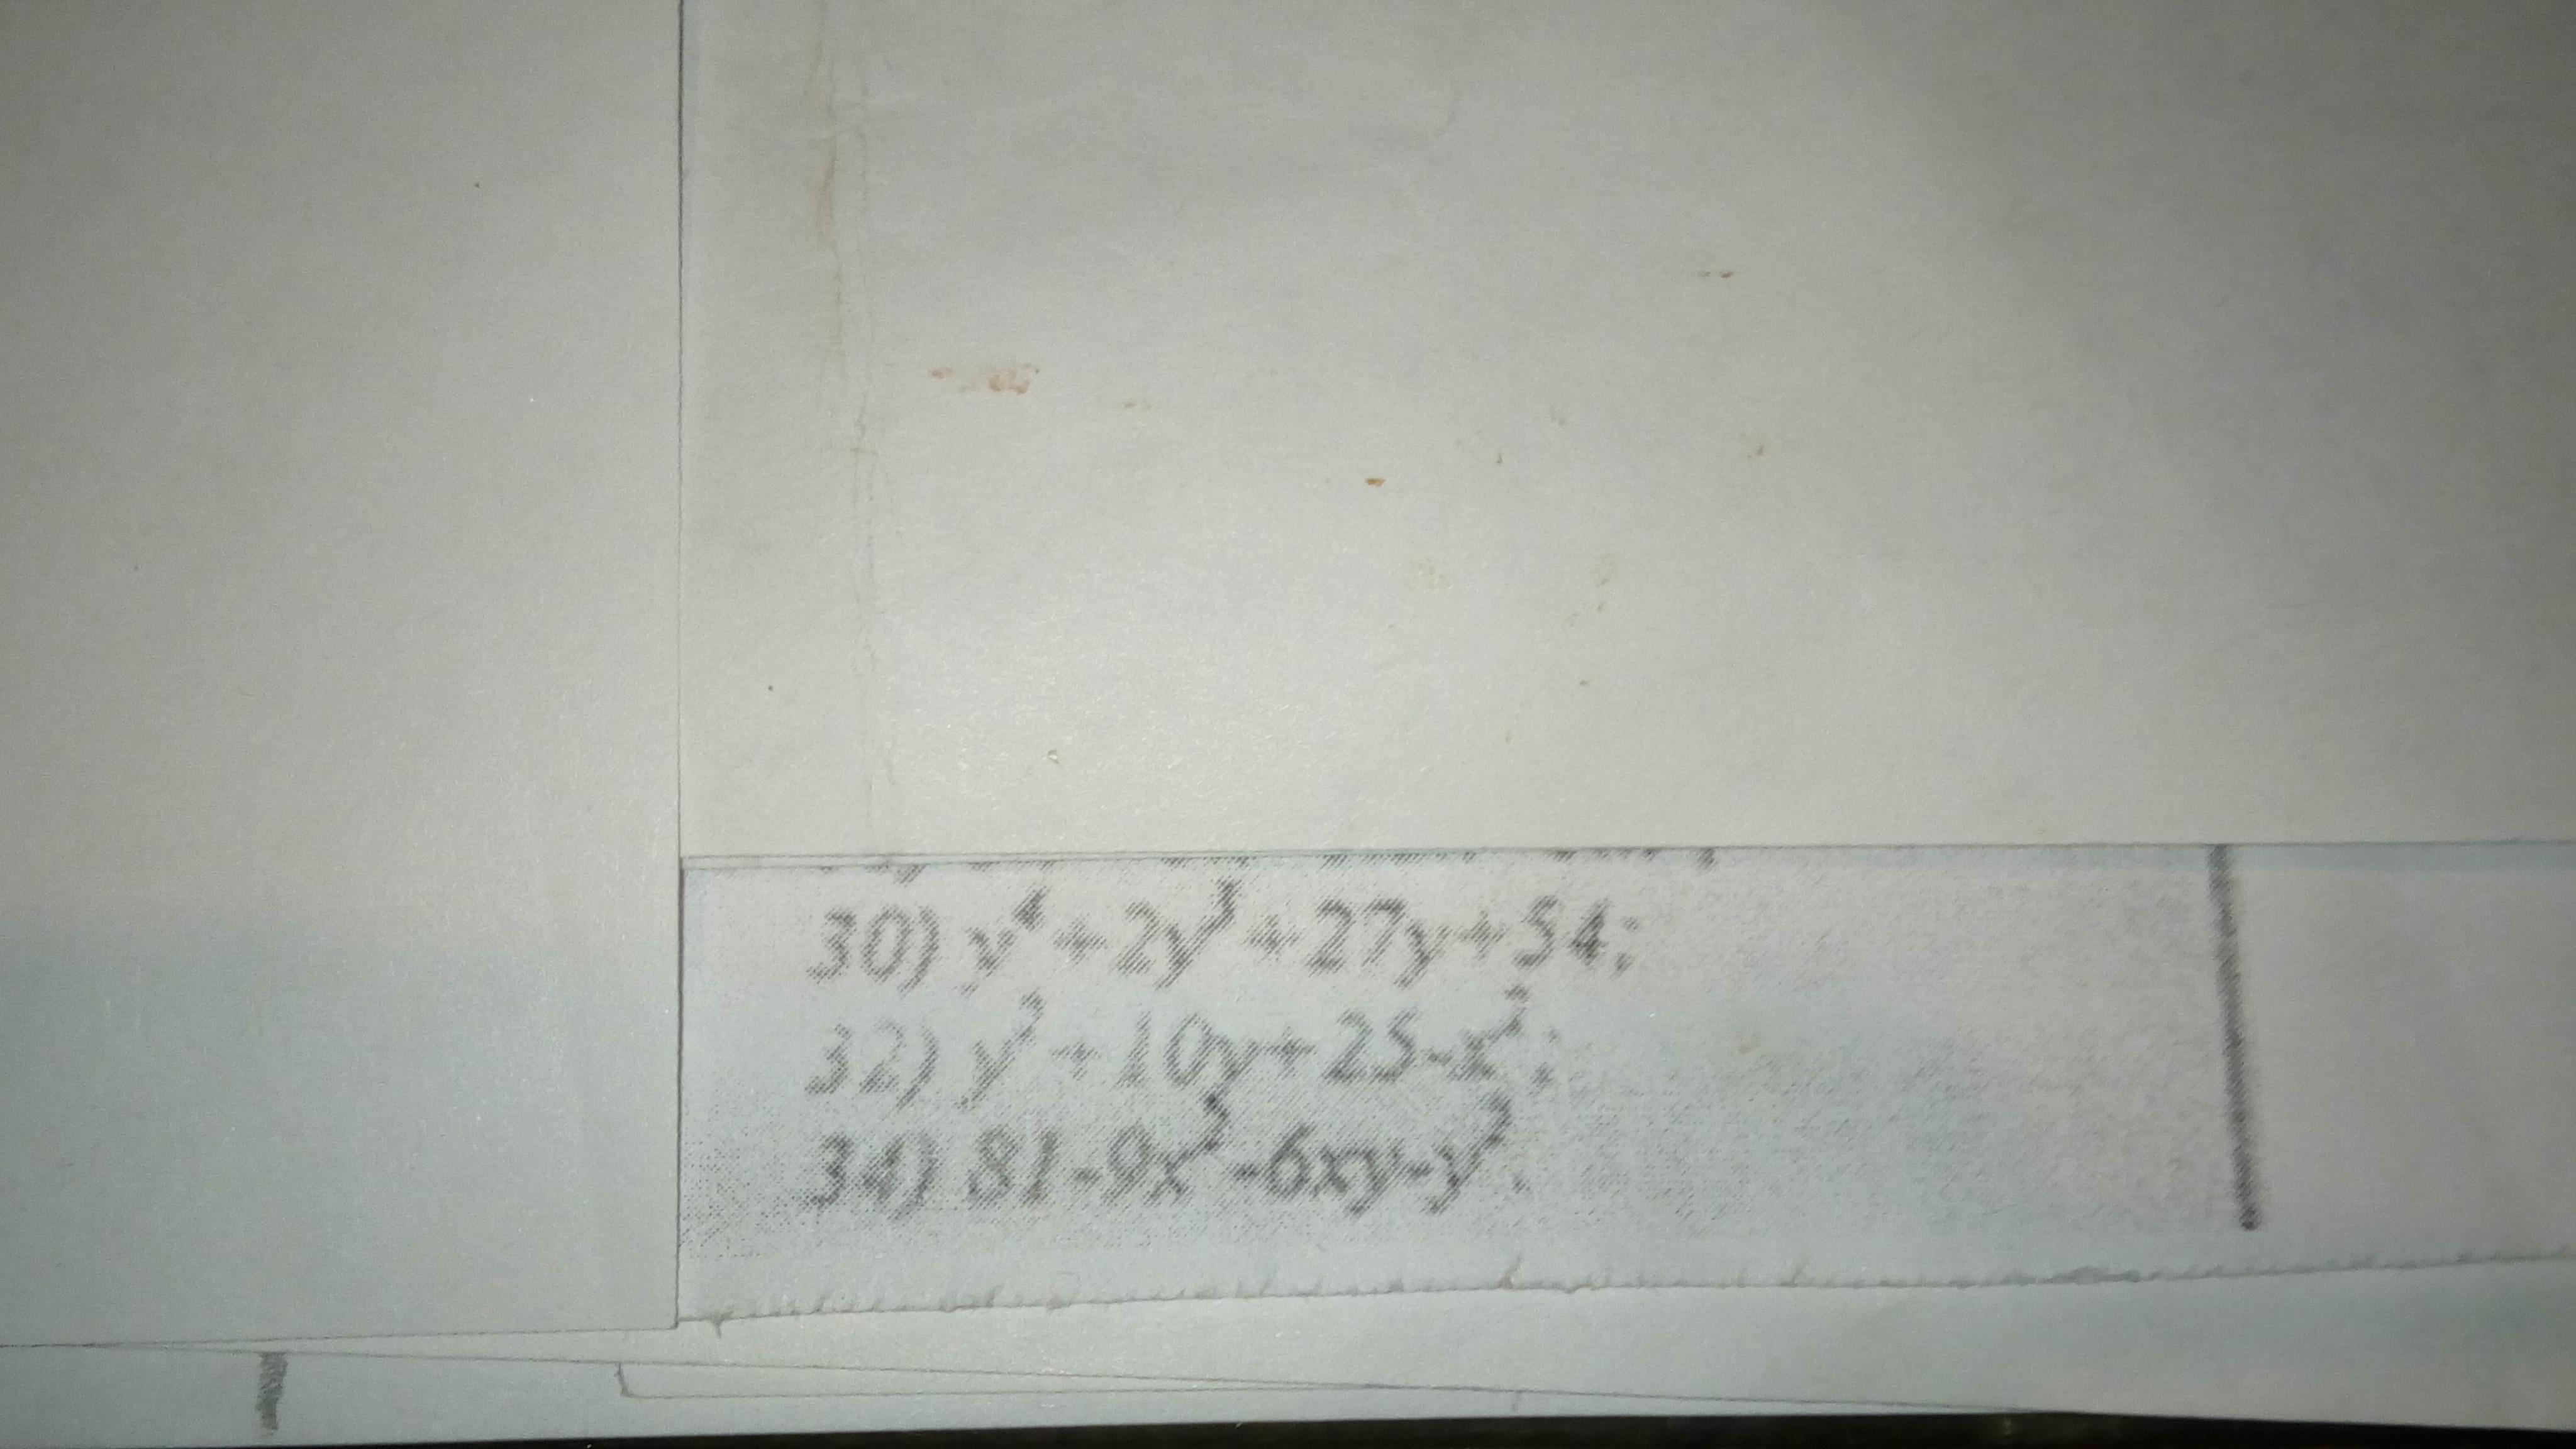 30) y⁴+2y³+27y+54;
32) y²+10y+25-x²;
34) 81-9x²-6xy-y².